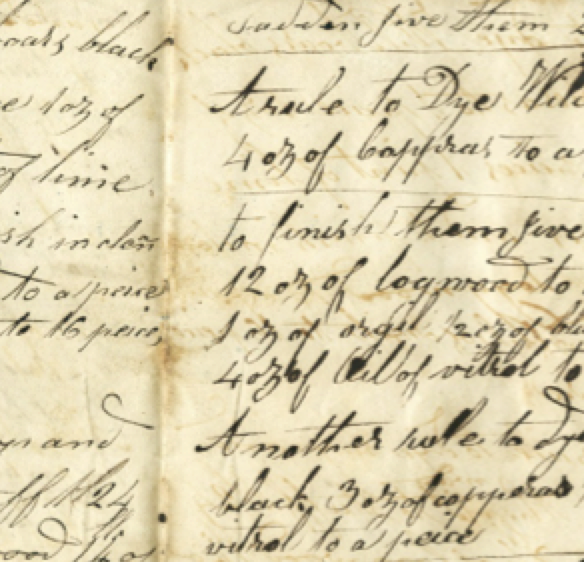 black
1 oz of
of lime
ish in clear
to a peice
to 16 peice,
and
24
Sadden give them
A rule to Dye
4 oz of Copperas to a
to finish them give
12 oz of logwood to
1 oz of orgil 1/2 oz of
4 oz of Oil of vitrol to
Another rule to dye
black, 3 oz of copperas
vitrol to a peice